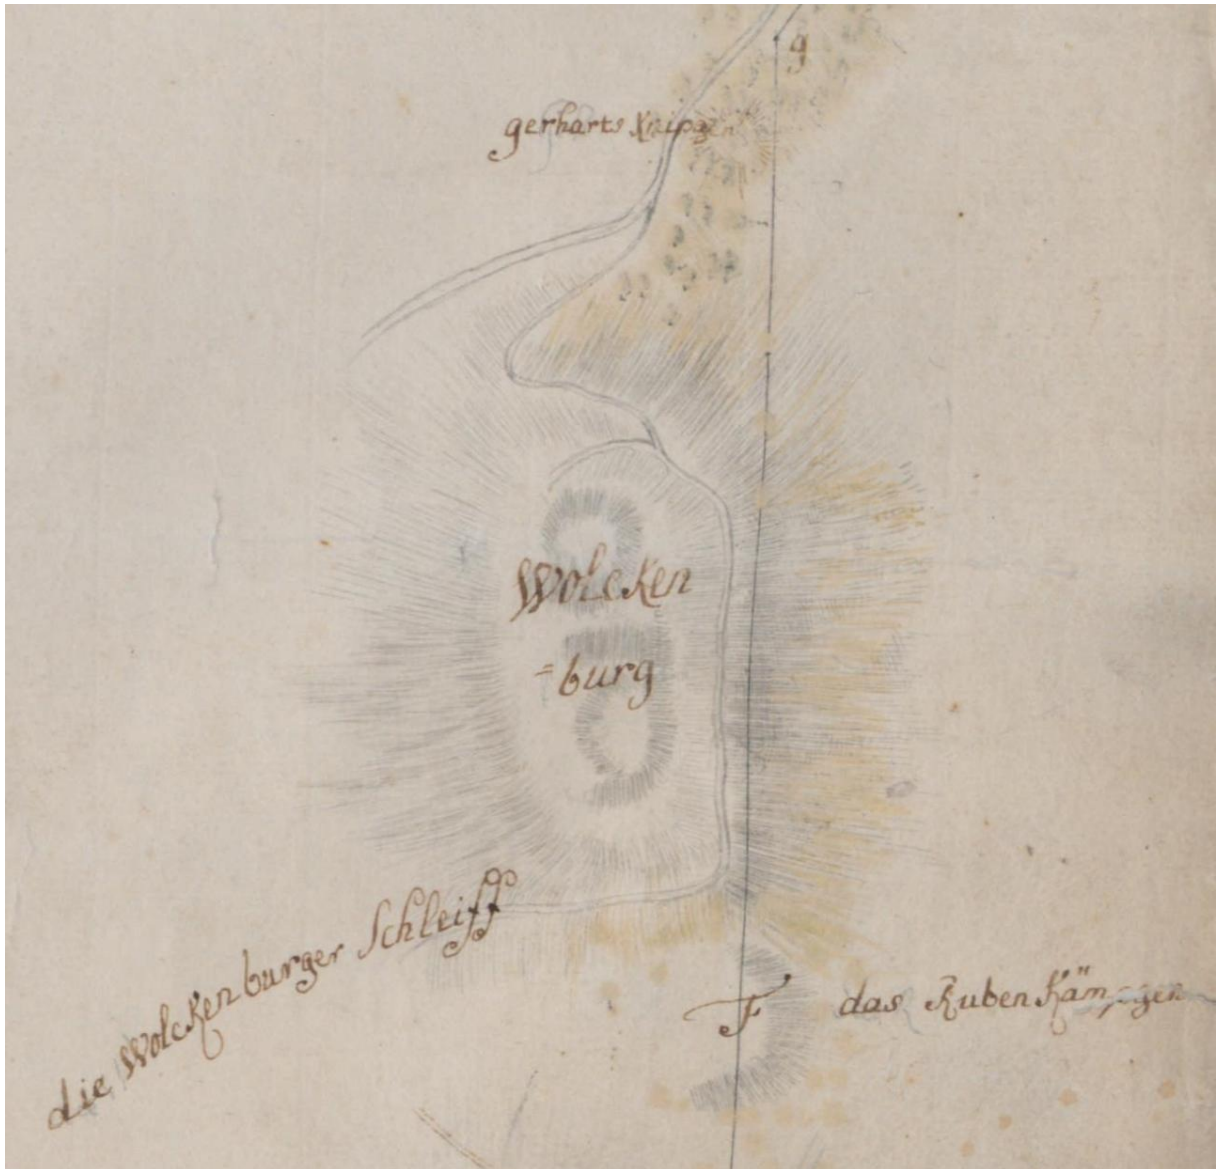 g
gerharts Knipgen
Wolcken
=burg
die Wolckenburger Schleiff
F das Ruben Kämpgen